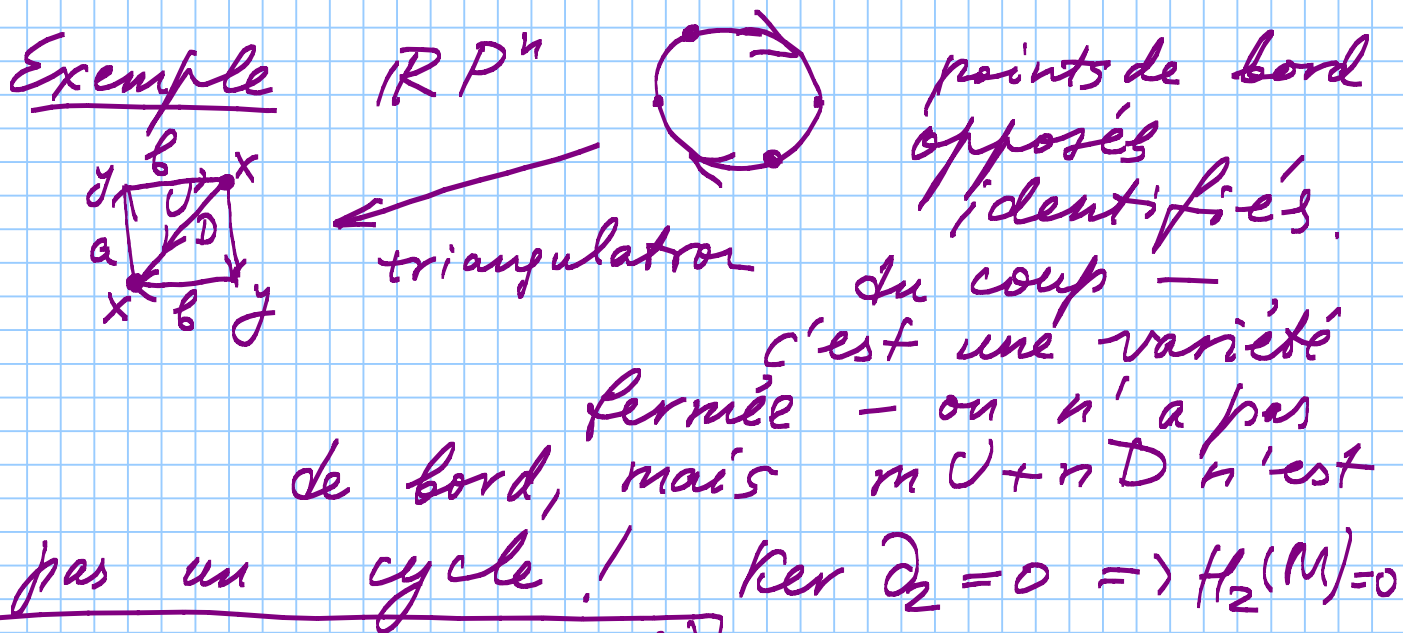 Exemple RPⁿ points de bord
opposés
identifiés.
b
y x
U
D
a
x b y
triangulation
du coup —
c'est une variété
fermée — on n'a pas
de bord, mais mU+nD n'est
pas un cycle! Ker ∂₂=0 => H₂(M)=0